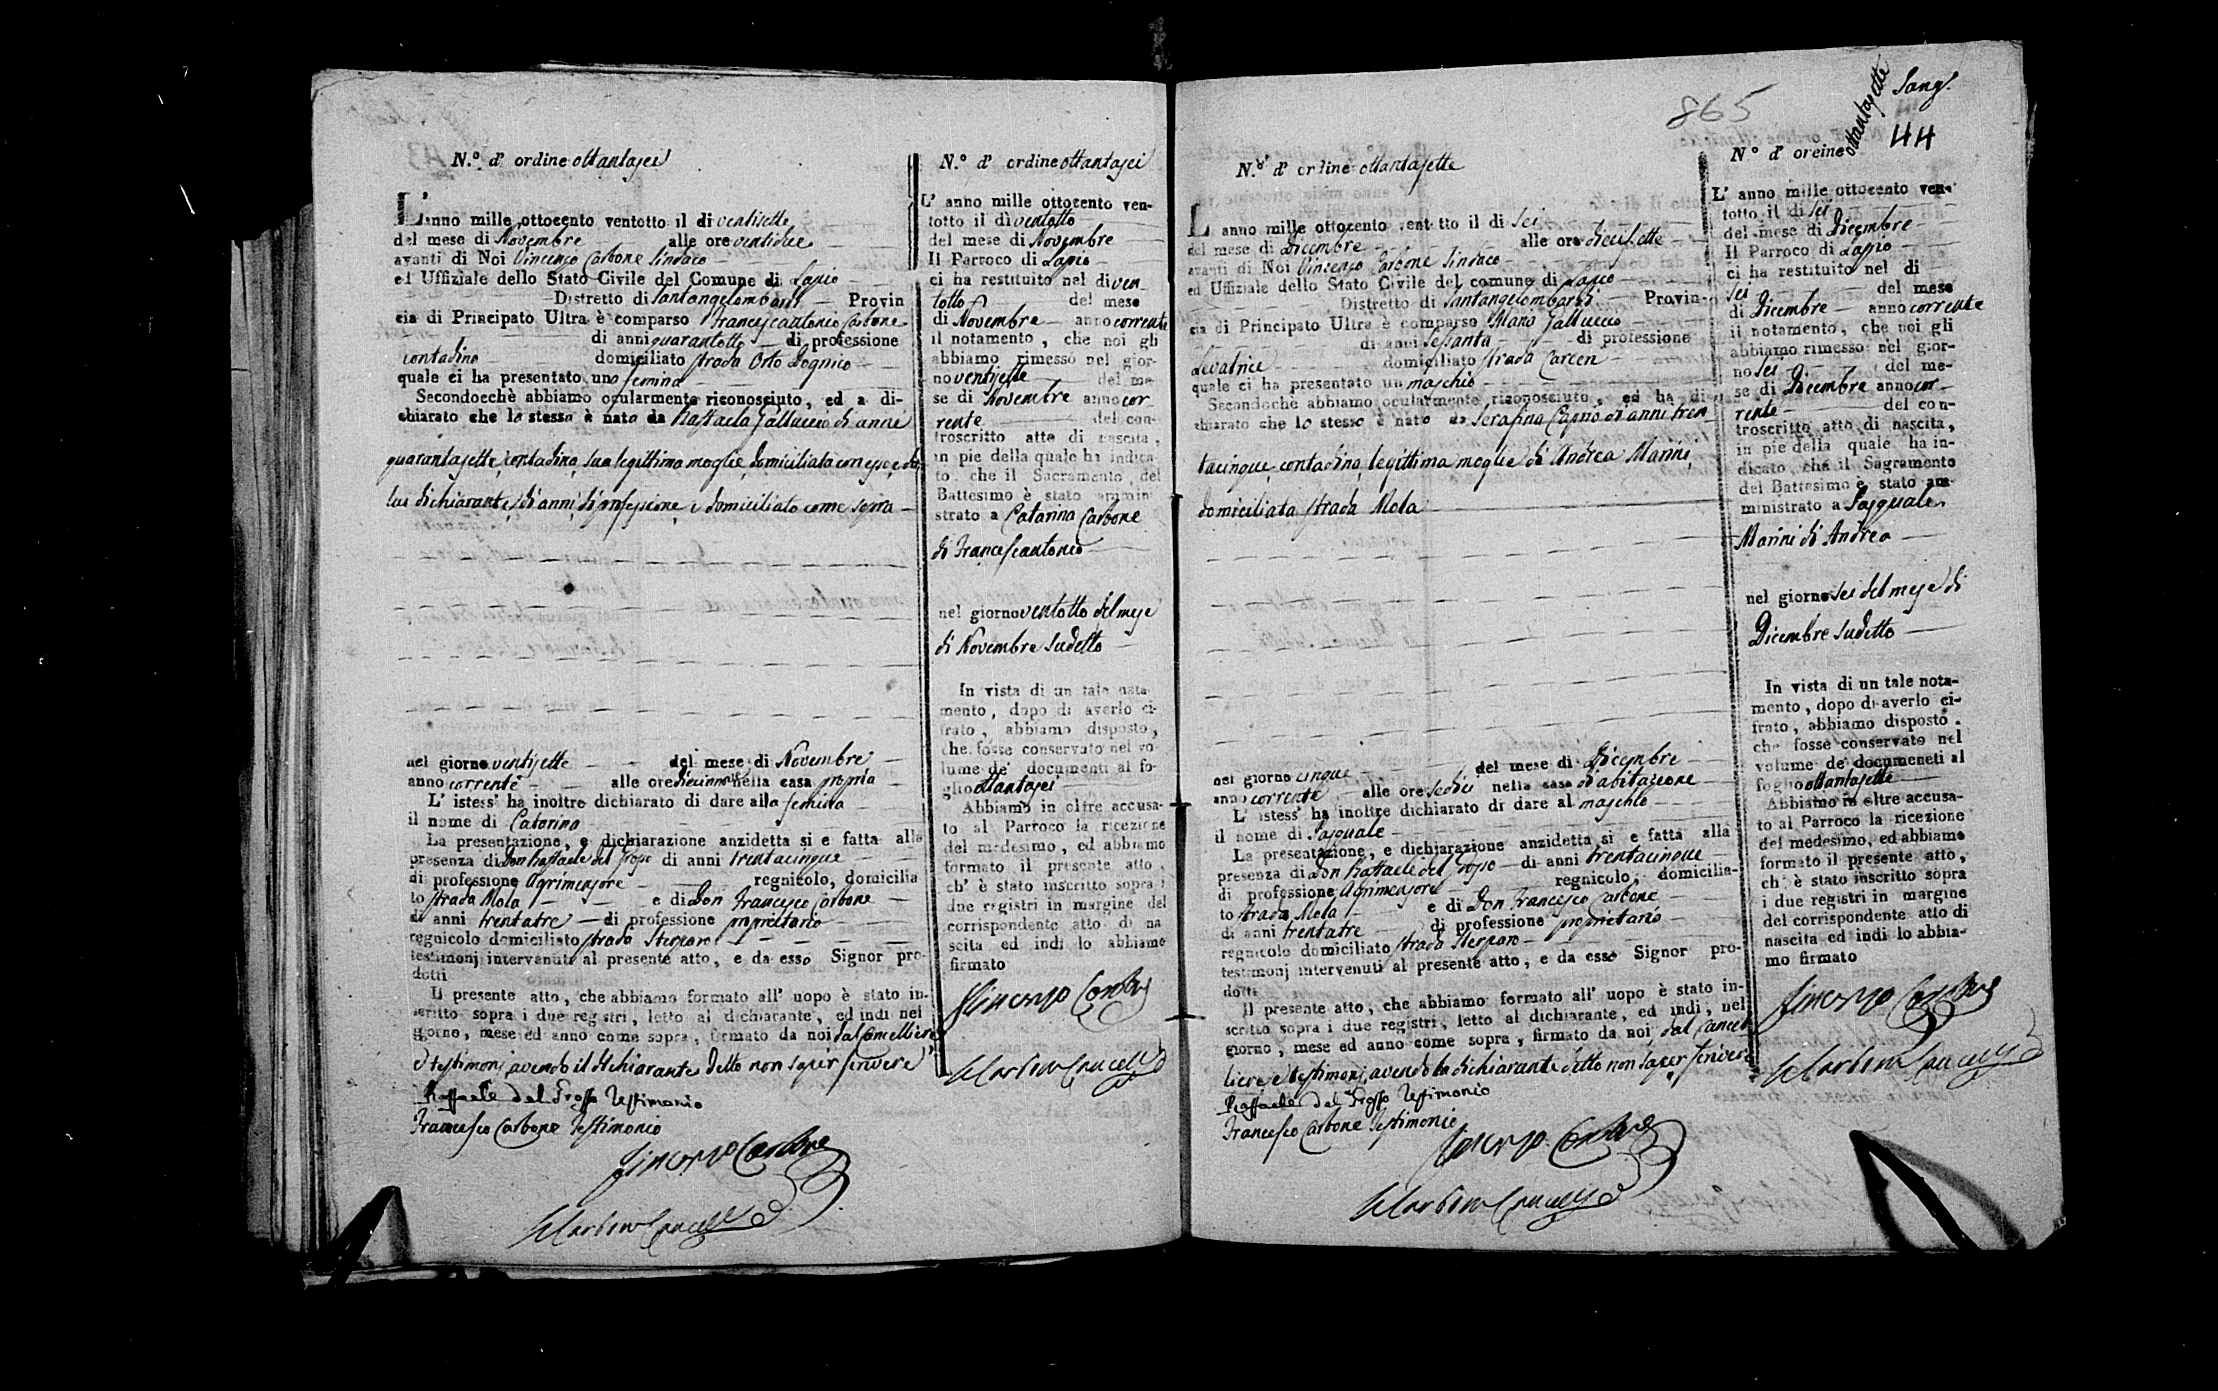 N.º d' ordine ottantasei
L'anno mille ottocento ventotto il di ventisette
del mese di Novembre alle ore ventidue
avanti di Noi Vincenzo Carbone Sindaco
ed Uffiziale dello Stato Civile del Comune di Lapio
Distretto di Santangelolombardi Provin
cia di Principato Ultra è comparso Francescantonio Carbone
di anni quarantotto di professione
contadino domiciliato strada Orto
quale ci ha presentato una femina
Secondocchè abbiamo ocularmente riconosciuto, ed a di-
chiarato che lo stesso è nato da Raffaela Galluccio di anni
quarantasette, contadina, sua legittima moglie, domiciliata con esso, e da
lui dichiarante, di anni, di professione, e domiciliato come sopra
nel giorno ventisette del mese di Novembre
anno corrente alle ore diecinnove nella casa propria
L' istess' ha inoltre dichiarato di dare alla femina
il nome di Catarina
La presentazione, e dichiarazione anzidetta si e fatta alla
presenza di Don Raffaele del Grosso di anni trentacinque
di professione Agrimensore regnicolo, domicilia
to strada Mola e di Don Francesco Carbone
di anni trentatre di professione proprietario
regnicolo domiciliato strada Sterparo
testimonj intervenuti al presente atto, e da esso Signor pro-
dotti
Il presente atto, che abbiamo formato all' uopo è stato in-
scritto sopra i due registri, letto al dichiarante, ed indi nel
giorno, mese ed anno come sopra, firmato da noi dal Cancelliere
e testimonj avendo il dichiarante detto non saper scrivere
Raffaele del Grosso Testimonio
Francesco Carbone Testimonio
Vincenzo Carbone
N.º d' ordine ottantasei
L' anno mille ottocento ven-
totto il dì ventotto
del mese di Novembre
Il Parroco di Lapio
ci ha restituito nel di ven
totto del mese
di Novembre anno corrente
il notamento, che noi gli
abbiamo rimesso nel gior-
no ventisette del me
se di Novembre anno cor
rente del con-
troscritto atto di nascita,
in pie della quale ha indica
to che il Sacramento del
Battesimo è stato ammini
strato a Catarina Carbone
di Francescantonio
nel giorno ventotto del mese
di Novembre sudetto
In vista di un tale nota-
mento, dopo di averlo ci-
frato, abbiamo disposto,
che fosse conservato nel vo
lume de' documenti al fo-
glio ottantasei
Abbiamo in oltre accusa-
to al Parroco la ricezione
del medesimo, ed abbiamo
formato il presente atto,
ch' è stato inscritto sopra i
due registri in margine del
corrispondente atto di na
scita ed indi lo abbiamo
firmato
Vincenzo Carbone
865
44
N.º d' ordine ottantasette
L' anno mille ottocento ventotto il di sei
del mese di Dicembre alle ore diecisette
avanti di Noi Vincenzo Carbone Sindaco
ed Uffiziale dello Stato Civile del comune di Lapio
Distretto di Santangelolombardi Provin-
cia di Principato Ultra è comparso Maria Galluccio
di anni sessanta di professione
Levatrice domiciliato strada Carcen
quale ci ha presentato un maschio
Secondoche abbiamo ocularmente riconosciuto, ed ha di
chiarato che lo stesso è nato da Serafina Carpio di anni tren
tacinque, contadina, legittima moglie di Andrea Marini,
domiciliata strada Mola
nel giorno cinque del mese di Dicembre
anno corrente alle ore sedici nella casa di abitazione
L' istess' ha inoltre dichiarato di dare al maschio
il nome di Pasquale
La presentazione, e dichiarazione anzidetta si e fatta alla
presenza di Don Raffaele del Grosso di anni trentacinque
di professione Agrimensore regnicolo, domicilia-
to strada Mola e di Don Francesco Carbone
di anni trentatre di professione proprietario
regnicolo domiciliato strada Sterparo
testimonj intervenuti al presente atto, e da esso Signor pro-
dotti
Il presente atto, che abbiamo formato all' uopo è stato in-
scritto sopra i due registri, letto al dichiarante, ed indi, nel
giorno, mese ed anno come sopra, firmato da noi, dal Cancel
liere, e testimonj, avendo la dichiarante detto non saper scrivere
Raffaele del Grosso Testimonio
Francesco Carbone Testimonio
Vincenzo Carbone
N° d' oreine ottantasette
L' anno mille ottocento ven-
totto il di sei
del mese di Dicembre
Il Parroco di Lapio
ci ha restituito nel di
sei del mese
di Dicembre anno corrente
il notamento, che noi gli
abbiamo rimesso nel gior-
no sei del me-
se di Dicembre anno cor-
rente del con-
troscritto atto di nascita,
in pie della quale ha in-
dicato, che il Sagramento
del Battesimo è stato am-
ministrato a Pasquale
Marini di Andrea
nel giorno sei del mese di
Dicembre sudetto
In vista di un tale nota-
mento, dopo di averlo ci-
frato, abbiamo disposto.
che fosse conservato nel
volume de' documeneti al
foglio ottantasette
Abbiamo in oltre accusa-
to al Parroco la ricezione
del medesimo, ed abbiamo
formato il presente atto,
ch' è stato inscritto sopra
i due registri in margine
del corrispondente atto di
nascita ed indi lo abbia-
mo firmato
Vincenzo Carbone